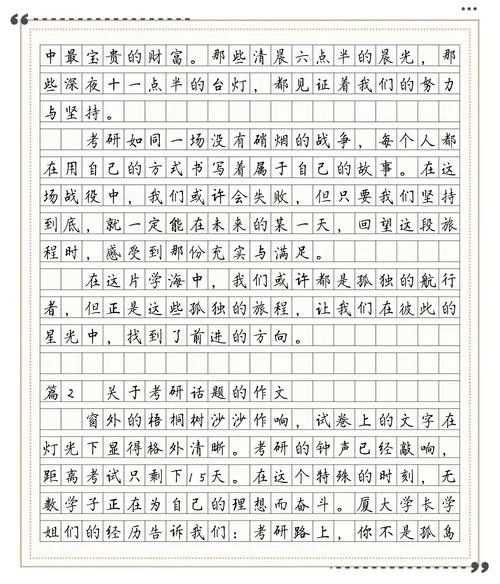 中最宝贵的财富。那些清晨六点半的晨光，那
些深夜十一点半的台灯，都见证着我们的努力
与坚持。
考研如同一场没有硝烟的战争，每个人都
在用自己的方式书写着属于自己的故事。在这
场战役中，我们或许会失败，但只要我们坚持
到底，就一定能在未来的某一天，回望这段旅
程时，感受到那份充实与满足。
在这片学海中，我们或许都是孤独的航行
者，但正是这些孤独的旅程，让我们在彼此的
星光中，找到了前进的方向。
篇2 关于考研话题的作文
窗外的梧桐树沙沙作响，试卷上的文字在
灯光下显得格外清晰。考研的钟声已经敲响，
距离考试只剩下15天。在这个特殊的时刻，无
数学子正在为自己的理想而奋斗。厦大学长学
姐们的经历告诉我们：考研路上，你不是孤岛